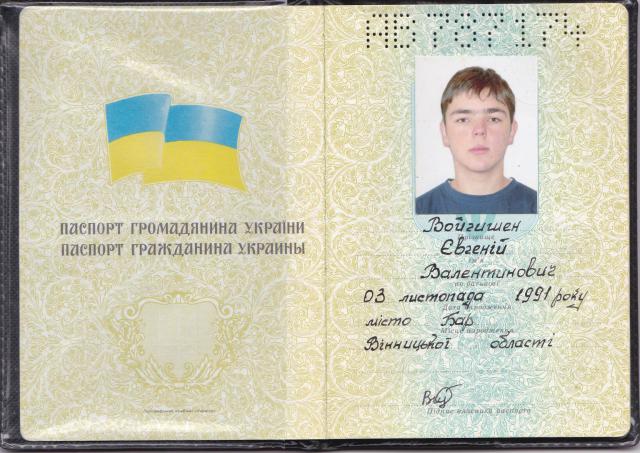 ПАСПОРТ ГРОМАДЯНИНА УКРАЇНИ
ПАСПОРТ ГРАЖДАНИНА УКРАИНЫ
АВ 787174
Войгишен
Прізвище
Євгеній
Ім'я
Валентинович
по батькові
03 листопада 1991 року
Дата народження
місто Бар
Місце народження
Вінницької області
Підпис власника паспорта